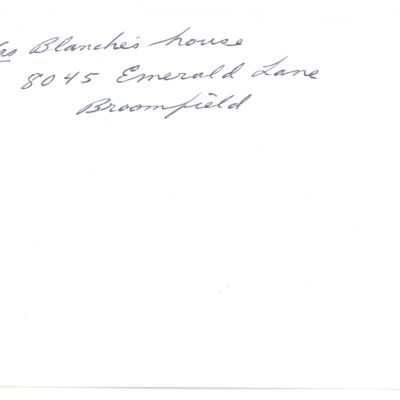 Blanche's house
8045 Emerald Lane
Broomfield